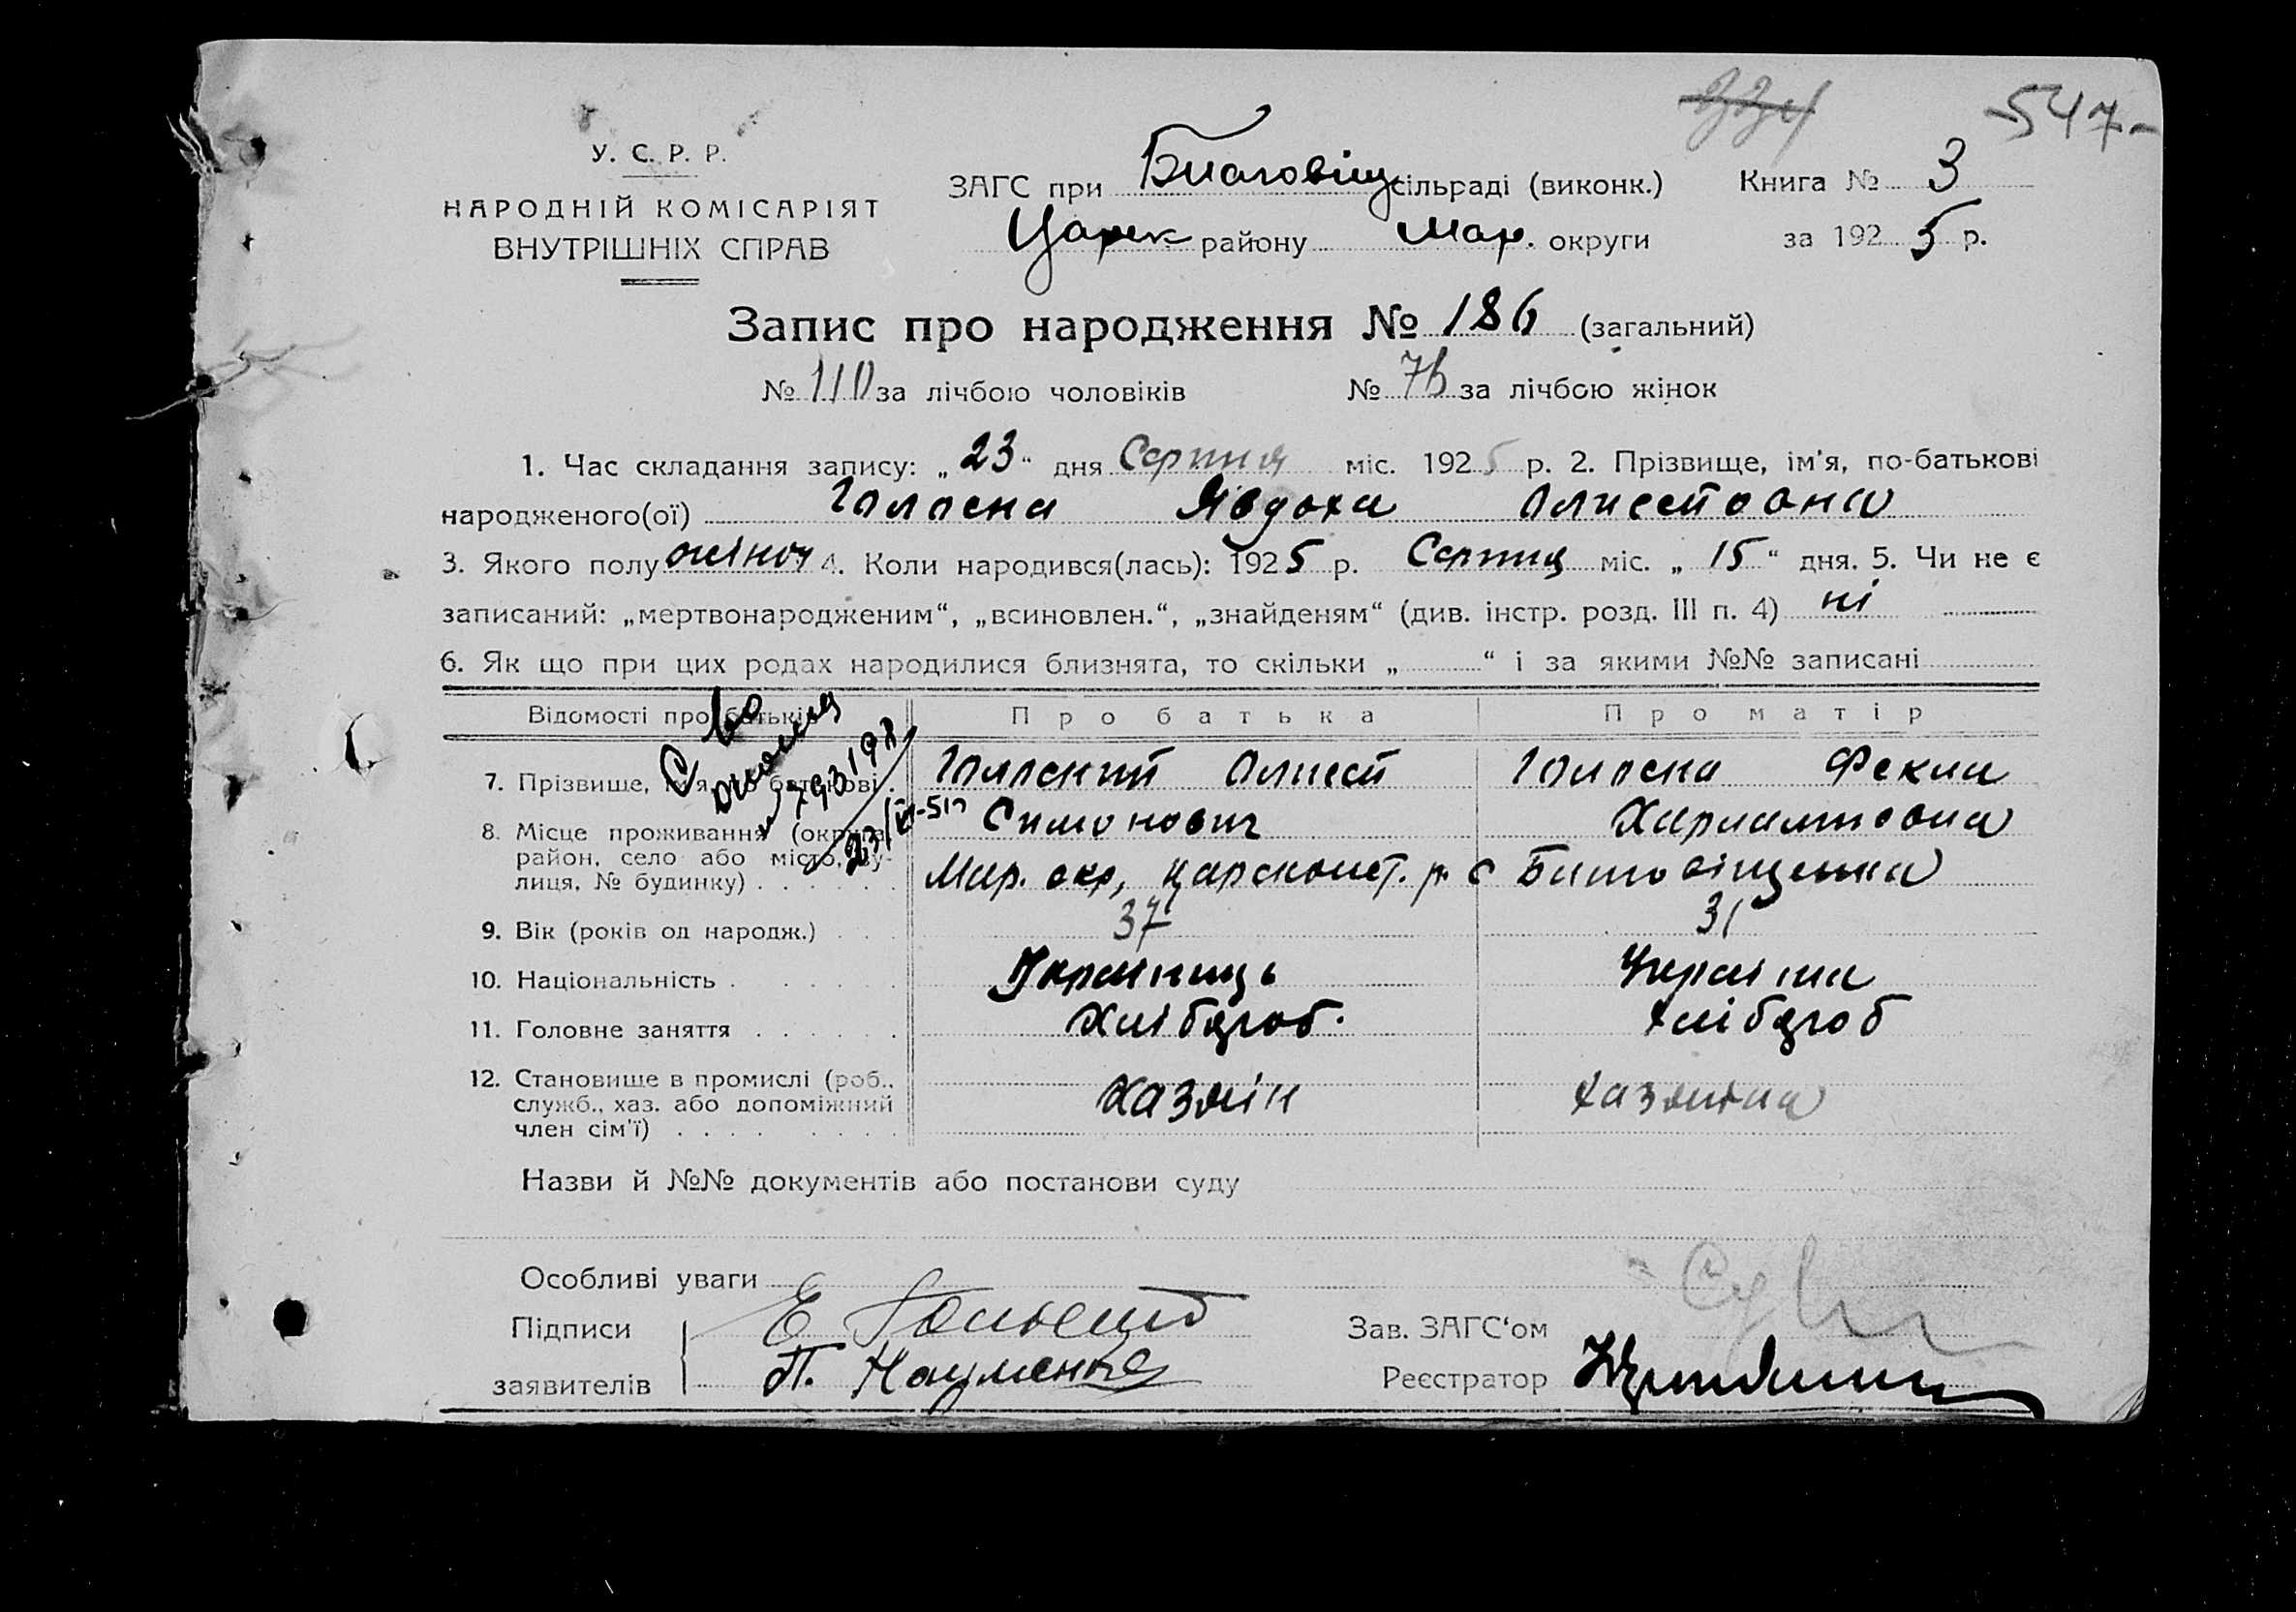 547
У. С. Р. Р.
НАРОДНІЙ КОМІСАРІЯТ
ВНУТРІШНІХ СПРАВ
ЗАГС при Благовіщ сільраді (виконк.) Книга № 3
Царек району Мар. округи за 1925 р.
Запис про народження № 186 (загальний)
№ 110 за лічбою чоловіків № 76 за лічбою жінок
1. Час складання запису: „23“ дня Серпня міс. 1925 р. 2. Прізвище, ім'я, по-батькові
народженого(ої) Явдоха
3. Якого полу жіноч 4. Коли народився(лась): 1925 р. Серпня міс. „15“ дня. 5. Чи не є
записаний: „мертвонародженим“, „всиновлен.“, „знайденям“ (див. інстр. розд. III п. 4) ні
6. Як що при цих родах народилися близнята, то скільки „ “ і за якими №№ записані
Відомості про батьків Про батька Про матір
7. Прізвище, ім'я, по батькові Фекла
Симонович Харлампіовна
8. Місце проживання (округа, район, село або місто, ву-
лиця, № будинку) Мар. окр, Царсконст. р. с Благовіщенка
9. Вік (років од народж.) 37 31
10. Національність Українець Україна
11. Головне заняття Хлібороб. Хлібороб
12. Становище в промислі (роб.,
служб., хаз. або допоміжний Хазяін Хазяіна
член сім'ї)
Назви й №№ документів або постанови суду
Особливі уваги
Підписи Е Зав. ЗАГС'ом
заявителів П. Науменко Реєстратор